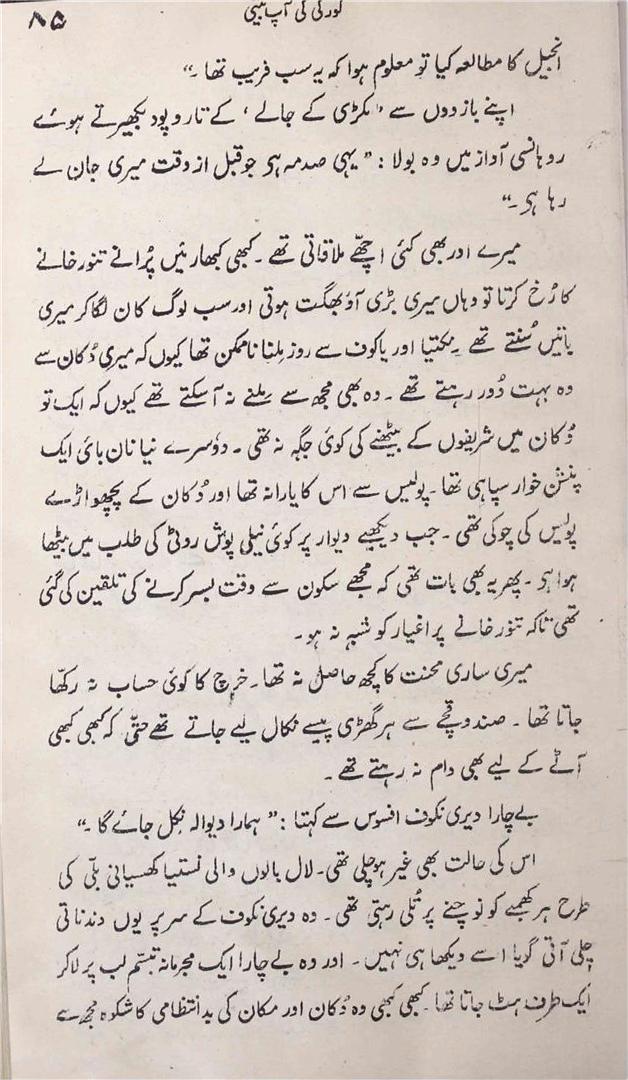 ۸۵
گورکی کی آپ بیتی
انجیل کا مطالعہ کیا تو معلوم ہوا کہ یہ سب فریب تھا۔“
اپنے بازوؤں سے ’مکڑی کے جالے‘ کے تار و پود بکھیرتے ہوئے
روہانسی آواز میں وہ بولا: ”یہی صدمہ ہی جو قبل از وقت میری جان لے
رہا ہی۔“
میرے اور بھی کئی اچھے ملاقاتی تھے۔ کبھی کبھار میں پُرانے تنور خانے
کا رُخ کرتا تو وہاں میری بڑی آؤ بھگت ہوتی اور سب لوگ کان لگا کر میری
باتیں سُنتے تھے۔ مکتیا اور یاکوف سے روز مِلنا ناممکن تھا کیوں کہ میری دُکان سے
وہ بہت دُور رہتے تھے۔ وہ بھی مجھ سے مِلنے نہ آ سکتے تھے کیوں کہ ایک تو
دُکان میں شریفوں کے بیٹھنے کی کوئی جگہ نہ تھی۔ دوسرے نیا نان بائی ایک
پنشن خوار سپاہی تھا۔ پولیس سے اس کا یارانہ تھا اور دُکان کے پچھواڑے
پولیس کی چوکی تھی۔ جب دیکھیے دیوار پر کوئی نیلی پوش روٹی کی طلب میں بیٹھا
ہوا ہی۔ پھر یہ بھی بات تھی کہ مجھے سکون سے وقت بسر کرنے کی تلقین کی گئی
تھی تاکہ تنور خانے پر اغیار کو شبہ نہ ہو۔
میری ساری محنت کا کچھ حاصل نہ تھا۔ خرچ کا کوئی حساب نہ رکھا
جاتا تھا۔ صندوقچے سے ہر گھڑی پیسے نکال لیے جاتے تھے حتیٰ کہ کبھی کبھی
آٹے کے لیے بھی دام نہ رہتے تھے۔
بے چارا دیری نکوف افسوس سے کہتا: ”ہمارا دیوالہ نِکل جائے گا۔“
اس کی حالت بھی غیر ہو چلی تھی۔ لال بالوں والی نستیا کھسیانی بلّی کی
طرح ہر کھمبے کو نوچنے پر تُلی رہتی تھی۔ وہ دیری نکوف کے سر پر یوں دندناتی
چلی آتی گویا اسے دیکھا ہی نہیں۔ اور وہ بے چارا ایک مجرمانہ تبسّم لب پر لا کر
ایک طرف ہٹ جاتا تھا۔ کبھی کبھی وہ دُکان اور مکان کی بد انتظامی کا شکوہ مجھ سے